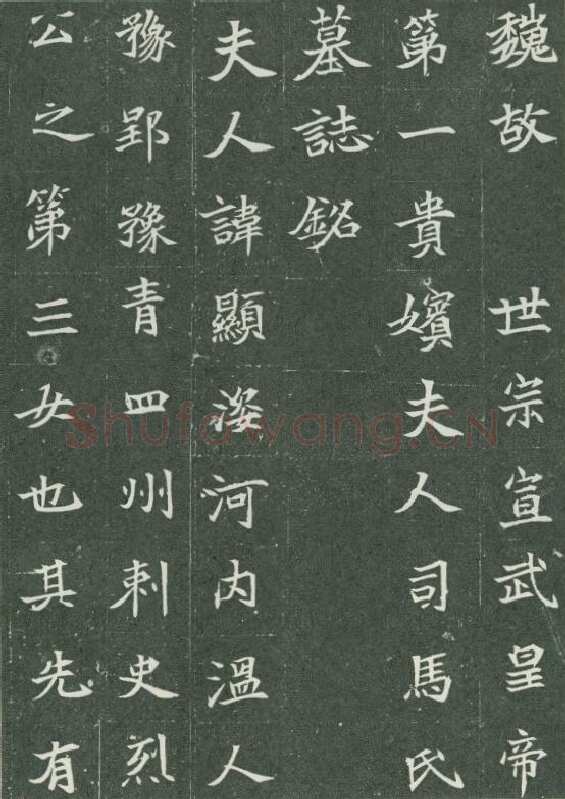 魏故 世宗宣武皇帝
第一貴嬪夫人司馬氏
墓誌銘
夫人諱顯姿河内溫人
豫郢豫青四州刺史烈
公之第三女也其先有
Shufawang.CN